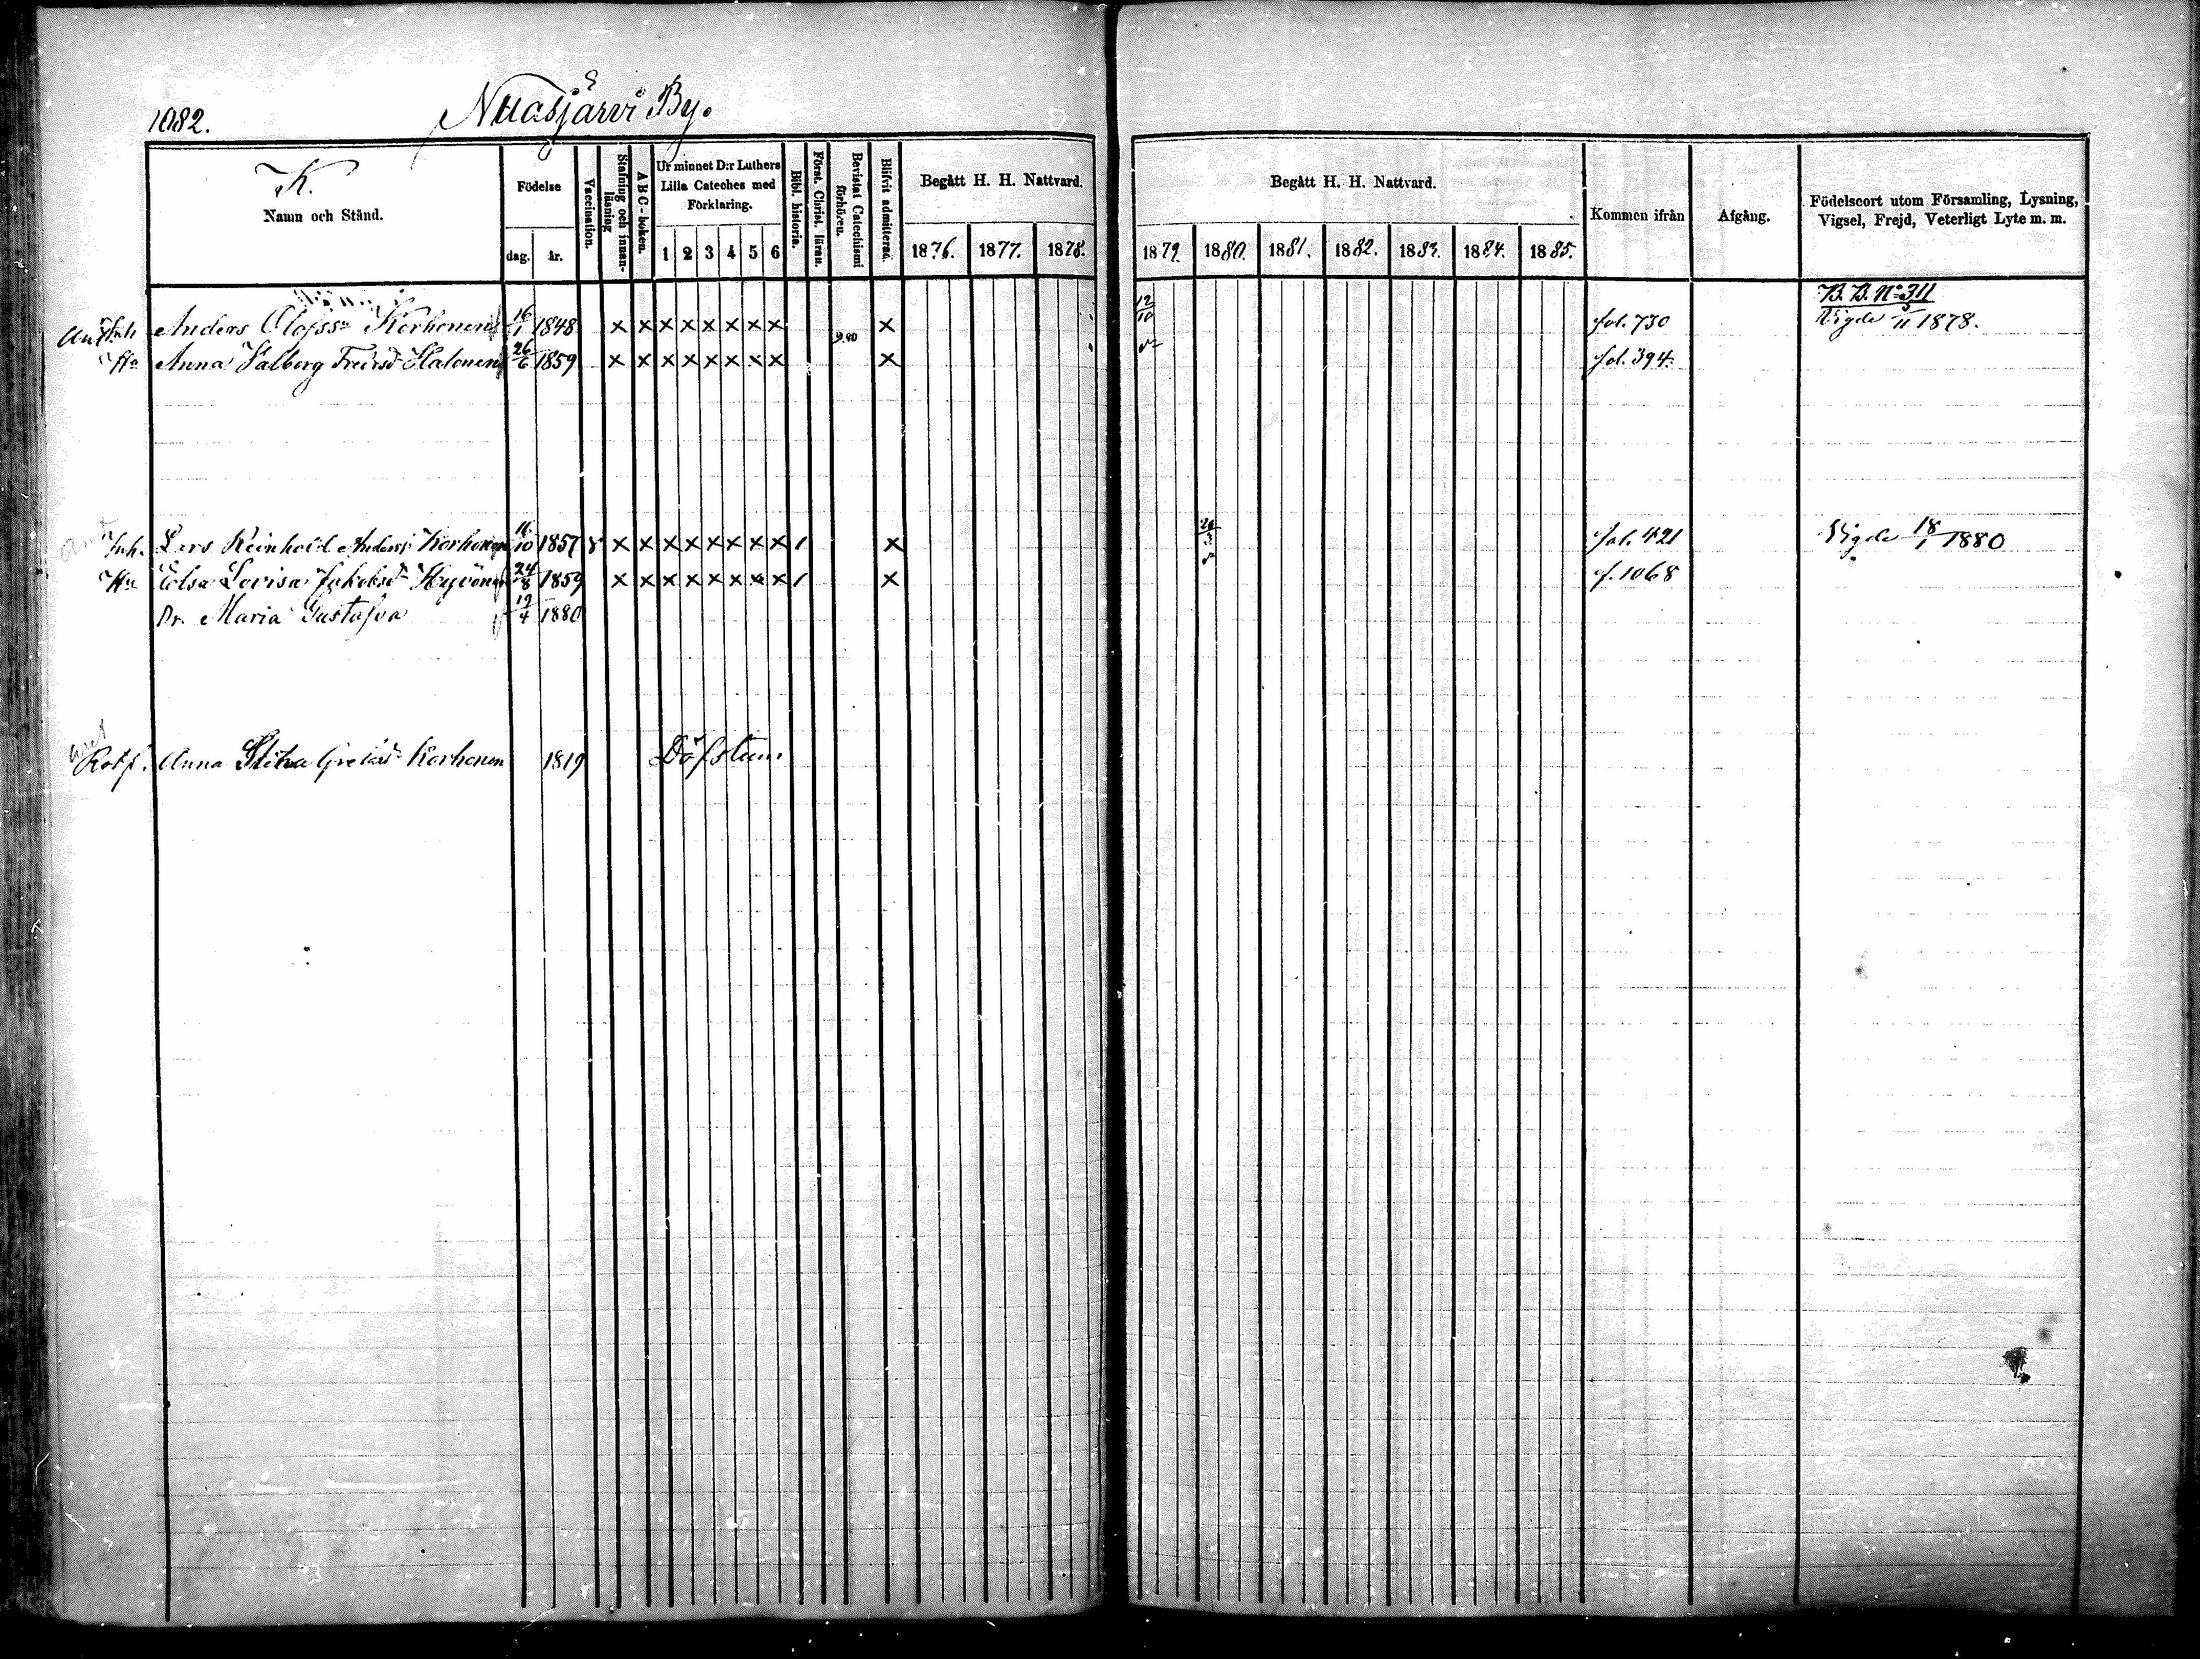 1082.
Nuasjärvi By.
K.
Namn och Stånd.
Födelse
dag. år.
Vaccination.
Stafning och innan-läsning
A B C-boken.
Ur minnet D:r Luthers
Lilla Cateches med
Förklaring.
1 2 3 4 5 6
Bibl. historia.
Först. Christ. läran.
Bevistat Catechismi förhören.
Blifvit admitterad.
Begått H. H. Nattvard.
1876. 1877. 1878.
Begått H. H. Nattvard.
1879. 1880. 1881. 1882. 1883. 1884. 1885.
Kommen ifrån
Afgång.
Födelseort utom Församling, Lysning,
Vigsel, Frejd, Veterligt Lyte m. m.
B. B. No 311
Inh. Anders Olofss. Korhonen 16/1 1848 × × × × × × × × × 12/10 fol. 730 Vigde 3/11 1878.
Hu Anna Valborg Fredrsd Halonen 26/6 1859 × × × × × × × × × fol. 394.
Inh. Lars Reinhold Anderss Korhonen 16/10 1857 v × × × × × × × × / × fol. 421 Vigde 18/1 1880
Hu Elsa Lovisa Jakobsd Hyvönen 24/8 1859 × × × × × × × × / × f. 1068
Dr. Maria Gustafva 19/4 1880
Rotf. Anna Stina Gretasd Korhonen 1819 Döfstum